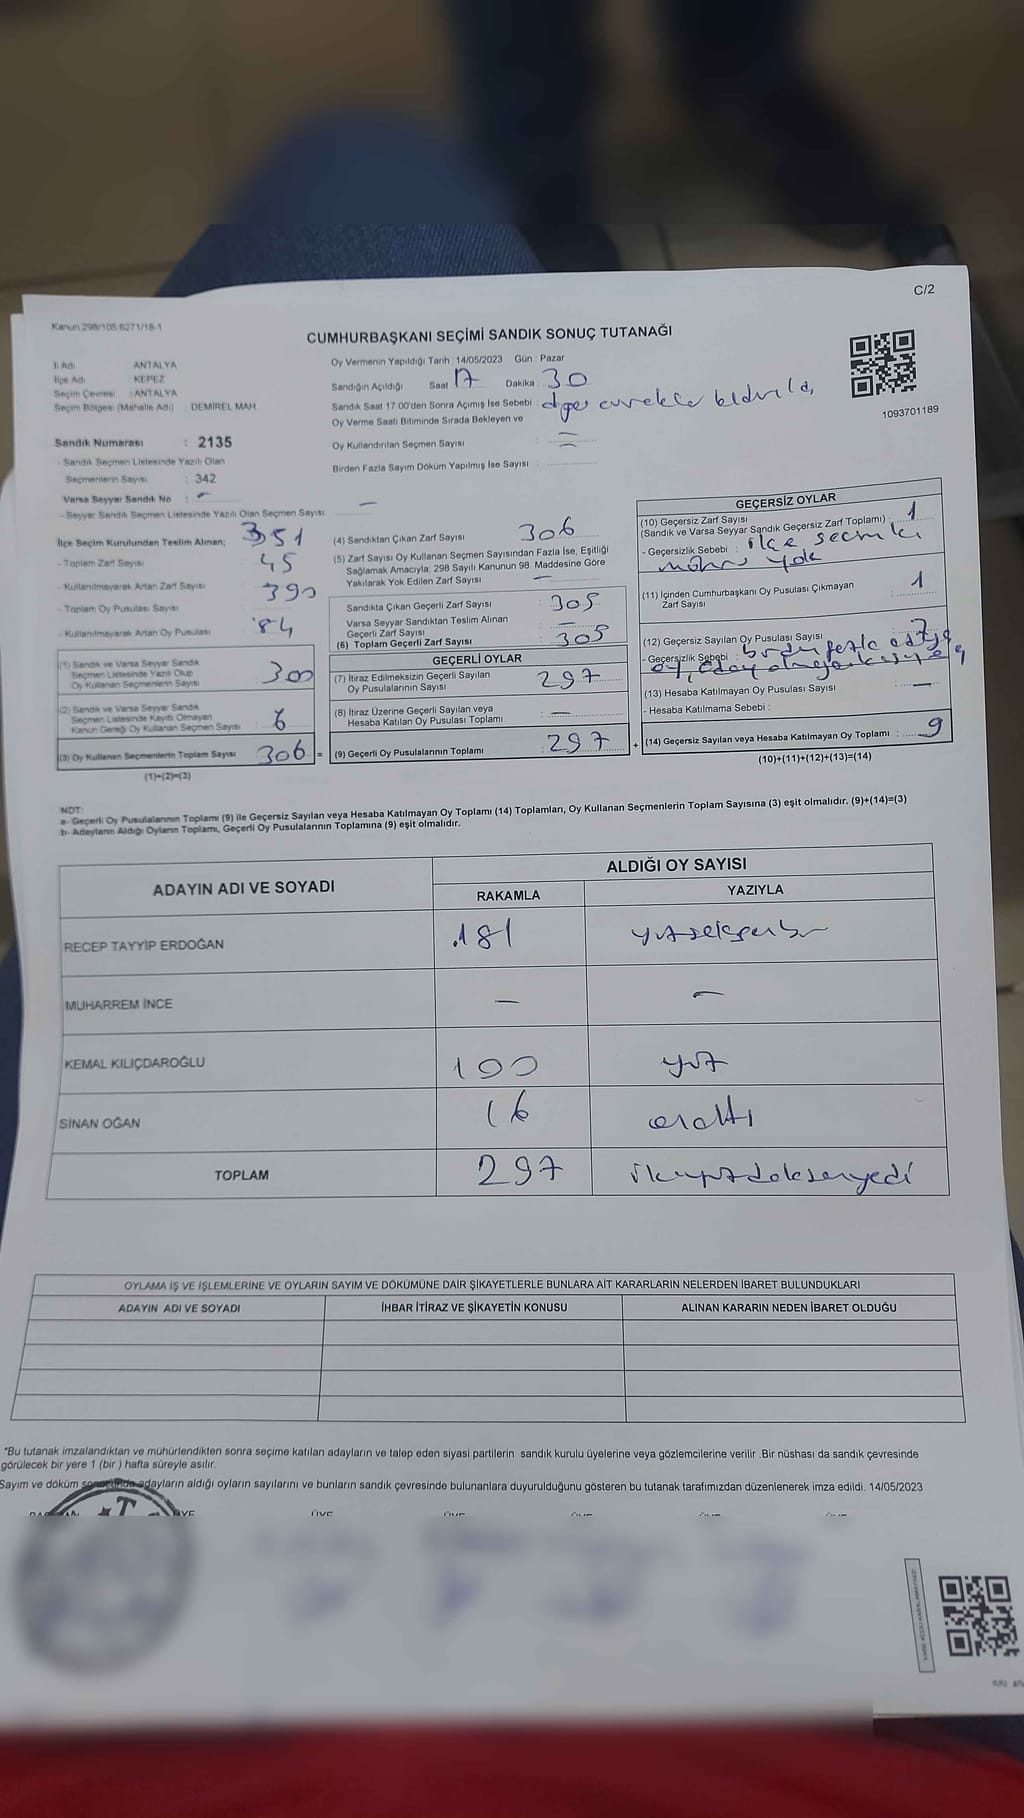 C/2
Kanun:298/105;6271/18-1
CUMHURBAŞKANI SEÇİMİ SANDIK SONUÇ TUTANAĞI
İl Adı : ANTALYA
İlçe Adı : KEPEZ
Seçim Çevresi : ANTALYA
Seçim Bölgesi (Mahalle Adı) : DEMİREL MAH
Oy Vermenin Yapıldığı Tarih :14/05/2023 Gün : Pazar
Sandığın Açıldığı Saat 17 Dakika : 30
Sandık Saat 17:00'den Sonra Açımış İse Sebebi : bldrıldı,
Oy Verme Saati Bitiminde Sırada Bekleyen ve
Oy Kullandırılan Seçmen Sayısı : =
Birden Fazla Sayım Döküm Yapılmış İse Sayısı :
1093701189
Sandık Numarası : 2135
- Sandık Seçmen Listesinde Yazılı Olan
Seçmenlerin Sayısı : 342
Varsa Seyyar Sandık No : -
- Seyyar Sandık Seçmen Listesinde Yazılı Olan Seçmen Sayısı: -
İlçe Seçim Kurulundan Teslim Alınan; 351
- Toplam Zarf Sayısı : 45
- Kullanılmayarak Artan Zarf Sayısı : 390
- Toplam Oy Pusulası Sayısı : 84
- Kullanılmayarak Artan Oy Pusulası :
(1) Sandık ve Varsa Seyyar Sandık
Seçmen Listesinde Yazılı Olup
Oy Kullanan Seçmenlerin Sayısı : 300
(2) Sandık ve Varsa Seyyar Sandık
Seçmen Listesinde Kayıtlı Olmayan
Kanun Gereği Oy Kullanan Seçmen Sayısı : 6
(3) Oy Kullanan Seçmenlerin Toplam Sayısı 306 =
(1)+(2)=(3)
(4) Sandıktan Çıkan Zarf Sayısı 306
(5) Zarf Sayısı Oy Kullanan Seçmen Sayısından Fazla İse, Eşitliği
Sağlamak Amacıyla; 298 Sayılı Kanunun 98. Maddesine Göre
Yakılarak Yok Edilen Zarf Sayısı : -
Sandıkta Çıkan Geçerli Zarf Sayısı : 305
Varsa Seyyar Sandıktan Teslim Alınan
Geçerli Zarf Sayısı : -
(6) Toplam Geçerli Zarf Sayısı : 305
GEÇERLİ OYLAR
(7) İtiraz Edilmeksizin Geçerli Sayılan
Oy Pusulalarının Sayısı : 297
(8) İtiraz Üzerine Geçerli Sayılan veya
Hesaba Katılan Oy Pusulası Toplamı : -
(9) Geçerli Oy Pusulalarının Toplamı : 297 +
GEÇERSİZ OYLAR
(10) Geçersiz Zarf Sayısı
(Sandık ve Varsa Seyyar Sandık Geçersiz Zarf Toplamı) : 1
- Geçersizlik Sebebi : ilçe seçim k.
mührü yok
(11) İçinden Cumhurbaşkanı Oy Pusulası Çıkmayan
Zarf Sayısı : 1
(12) Geçersiz Sayılan Oy Pusulası Sayısı : 7
- Geçersizlik Sebebi : birden fazla adaya
oy,
(13) Hesaba Katılmayan Oy Pusulası Sayısı : -
- Hesaba Katılmama Sebebi :
(14) Geçersiz Sayılan veya Hesaba Katılmayan Oy Toplamı : 9
(10)+(11)+(12)+(13)=(14)
NOT:
a- Geçerli Oy Pusulalarının Toplamı (9) ile Geçersiz Sayılan veya Hesaba Katılmayan Oy Toplamı (14) Toplamları, Oy Kullanan Seçmenlerin Toplam Sayısına (3) eşit olmalıdır. (9)+(14)=(3)
b- Adayların Aldığı Oyların Toplamı, Geçerli Oy Pusulalarının Toplamına (9) eşit olmalıdır.
ADAYIN ADI VE SOYADI ALDIĞI OY SAYISI
RAKAMLA YAZIYLA
RECEP TAYYİP ERDOĞAN 181 yüzseksenbir
MUHARREM İNCE - -
KEMAL KILIÇDAROĞLU 100 yüz
SİNAN OĞAN 16 onaltı
TOPLAM 297 ikiyüzdoksanyedi
OYLAMA İŞ VE İŞLEMLERİNE VE OYLARIN SAYIM VE DÖKÜMÜNE DAİR ŞİKAYETLERLE BUNLARA AİT KARARLARIN NELERDEN İBARET BULUNDUKLARI
ADAYIN ADI VE SOYADI İHBAR İTİRAZ VE ŞİKAYETİN KONUSU ALINAN KARARIN NEDEN İBARET OLDUĞU
*Bu tutanak imzalandıktan ve mühürlendikten sonra seçime katılan adayların ve talep eden siyasi partilerin sandık kurulu üyelerine veya gözlemcilerine verilir .Bir nüshası da sandık çevresinde
görülecek bir yere 1 (bir ) hafta süreyle asılır.
Sayım ve döküm sonucunda adayların aldığı oyların sayılarını ve bunların sandık çevresinde bulunanlara duyurulduğunu gösteren bu tutanak tarafımızdan düzenlenerek imza edildi. 14/05/2023